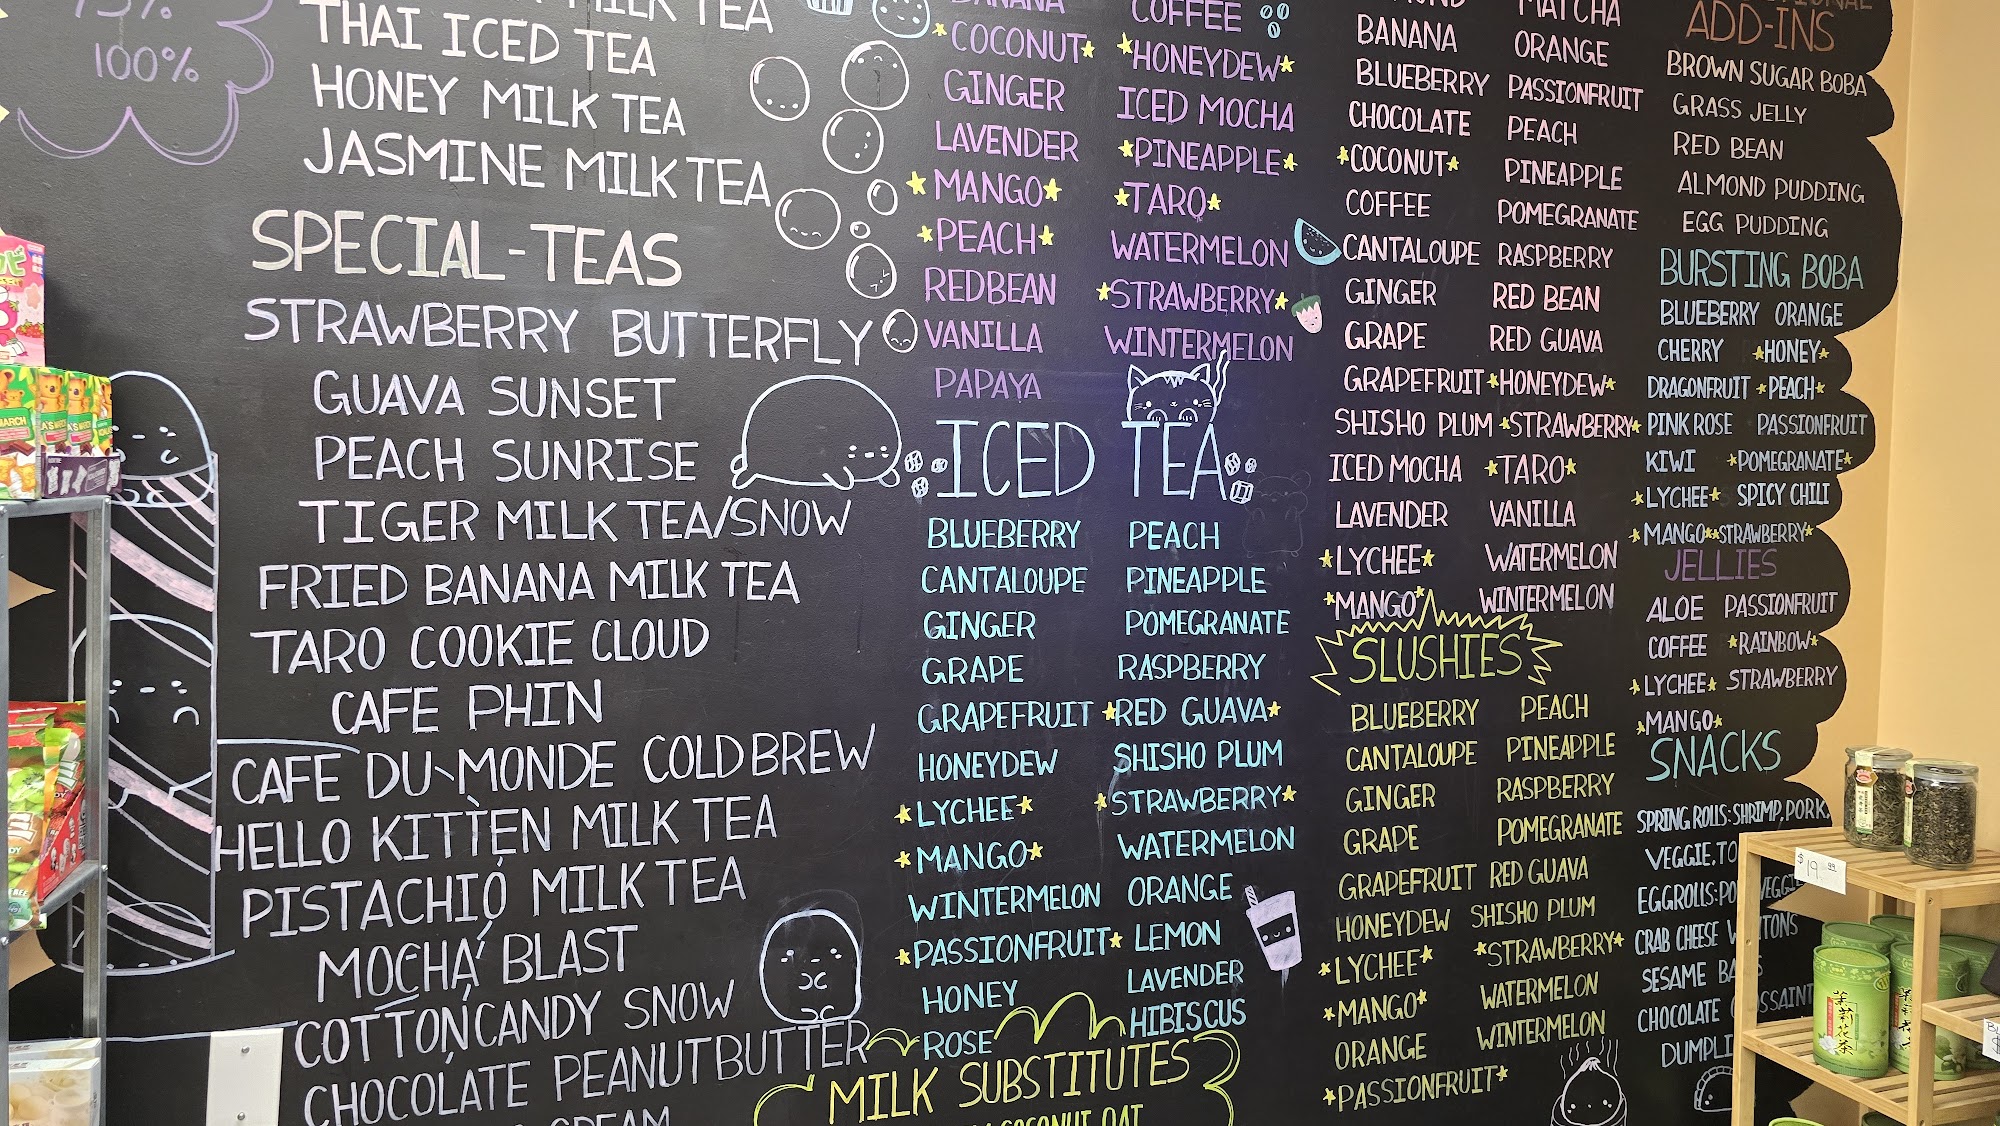 75%
100%
MILK TEA
THAI ICED TEA
HONEY MILK TEA
JASMINE MILK TEA
SPECIAL-TEAS
STRAWBERRY BUTTERFLY
GUAVA SUNSET
PEACH SUNRISE
TIGER MILK TEA/SNOW
FRIED BANANA MILK TEA
TARO COOKIE CLOUD
CAFE PHIN
CAFE DU MONDE COLD BREW
HELLO KITTEN MILK TEA
PISTACHIO MILK TEA
MOCHA BLAST
COTTON CANDY SNOW
CHOCOLATE PEANUTBUTTER
BANANA
*COCONUT*
GINGER
LAVENDER
*MANGO*
*PEACH*
REDBEAN
VANILLA
PAPAYA
COFFEE
*HONEYDEW*
ICED MOCHA
*PINEAPPLE*
*TARO*
WATERMELON
*STRAWBERRY*
WINTERMELON
ICED TEA
BLUEBERRY
CANTALOUPE
GINGER
GRAPE
GRAPEFRUIT
HONEYDEW
*LYCHEE*
*MANGO*
WINTERMELON
*PASSIONFRUIT*
HONEY
ROSE
PEACH
PINEAPPLE
POMEGRANATE
RASPBERRY
*RED GUAVA*
SHISHO PLUM
*STRAWBERRY*
WATERMELON
ORANGE
LEMON
LAVENDER
HIBISCUS
MILK SUBSTITUTES
COCONUT OAT
BANANA
BLUEBERRY
CHOCOLATE
*COCONUT*
COFFEE
CANTALOUPE
GINGER
GRAPE
GRAPEFRUIT
SHISHO PLUM
ICED MOCHA
LAVENDER
*LYCHEE*
*MANGO*
MATCHA
ORANGE
PASSIONFRUIT
PEACH
PINEAPPLE
POMEGRANATE
RASPBERRY
RED BEAN
RED GUAVA
*HONEYDEW*
*STRAWBERRY*
*TARO*
VANILLA
WATERMELON
WINTERMELON
SLUSHIES
BLUEBERRY
CANTALOUPE
GINGER
GRAPE
GRAPEFRUIT
HONEYDEW
*LYCHEE*
*MANGO*
ORANGE
*PASSIONFRUIT*
PEACH
PINEAPPLE
RASPBERRY
POMEGRANATE
RED GUAVA
SHISHO PLUM
*STRAWBERRY*
WATERMELON
WINTERMELON
ADD-INS
BROWN SUGAR BOBA
GRASS JELLY
RED BEAN
ALMOND PUDDING
EGG PUDDING
BURSTING BOBA
BLUEBERRY ORANGE
CHERRY *HONEY*
DRAGONFRUIT *PEACH*
PINK ROSE PASSIONFRUIT
KIWI *POMEGRANATE*
*LYCHEE* SPICY CHILI
*MANGO* *STRAWBERRY*
JELLIES
ALOE PASSIONFRUIT
COFFEE *RAINBOW*
*LYCHEE* STRAWBERRY
*MANGO*
SNACKS
SPRING ROLLS: SHRIMP, PORK,
VEGGIE,
EGGROLLS: VEGGIE
CRAB CHEESE
SESAME
CHOCOLATE
$19.99
茉莉花茶